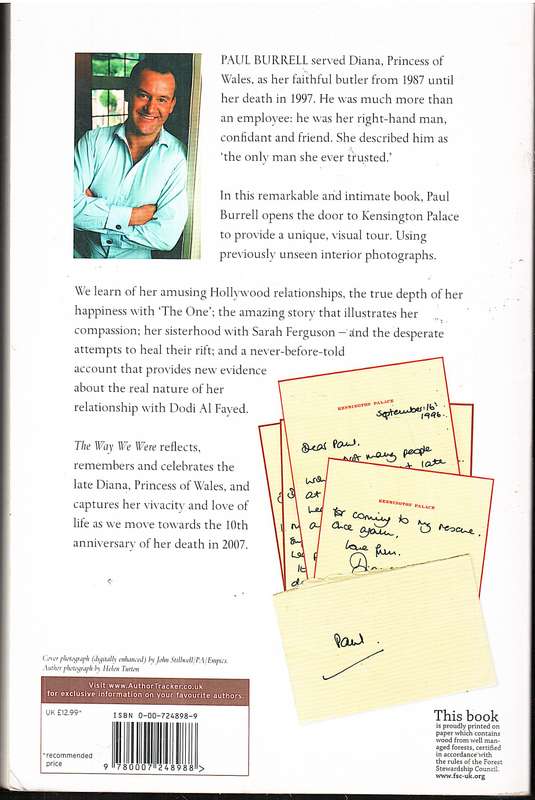 PAUL BURRELL served Diana, Princess of
Wales, as her faithful butler from 1987 until
her death in 1997. He was much more than
an employee: he was her right-hand man,
confidant and friend. She described him as
‘the only man she ever trusted.’
In this remarkable and intimate book, Paul
Burrell opens the door to Kensington Palace
to provide a unique, visual tour. Using
previously unseen interior photographs.
We learn of her amusing Hollywood relationships, the true depth of her
happiness with ‘The One’; the amazing story that illustrates her
compassion; her sisterhood with Sarah Ferguson – and the desperate
attempts to heal their rift; and a never-before-told
account that provides new evidence
about the real nature of her
relationship with Dodi Al Fayed.
The Way We Were reflects,
remembers and celebrates the
late Diana, Princess of Wales, and
captures her vivacity and love of
life as we move towards the 10th
anniversary of her death in 2007.
KENSINGTON PALACE
September 16
1996.
Dear Paul.
not many people
late
at
KENSINGTON PALACE
for coming to my rescue.
Once again,
love from.
Paul.
Cover photograph (digitally enhanced) by John Stillwell/PA/Empics.
Author photograph by Helen Turton
Visit www.AuthorTracker.co.uk
for exclusive information on your favourite authors.
UK £12.99*
ISBN 0-00-724898-9
*recommended
price
9 780007 248988 >
This book
is proudly printed on
paper which contains
wood from well man-
aged forests, certified
in accordance with
the rules of the Forest
Stewardship Council.
www.fsc-uk.org